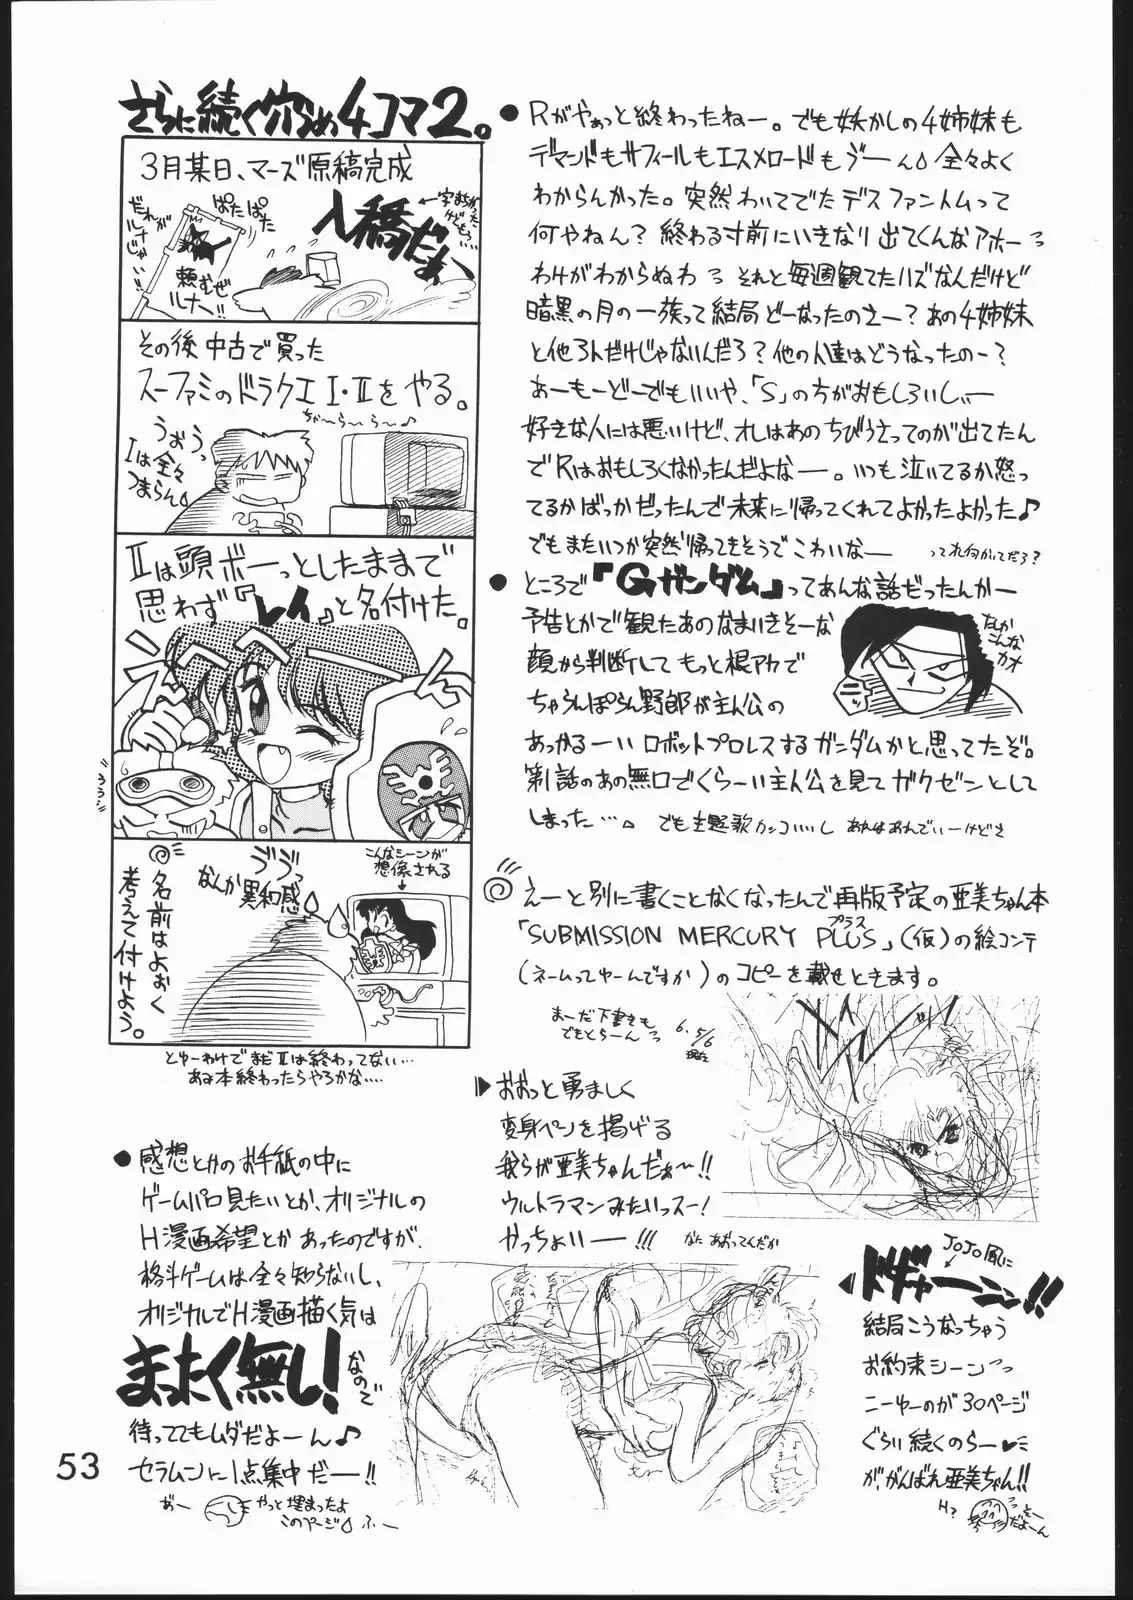 さらに続く穴うめ4コマ2。
3月某日、マーズ原稿完成
だれが
ルナじゃい
ぱたぱた
頼むぜ
ルナへ!!
入稿だぁ
その後中古で買った
スーファミのドラクエⅠ・Ⅱをやる。
ちゃ〜ら〜ら〜♪
うぉうっ
Ⅰは全々
つまらん
Ⅱは頭ボーっとしたままで
思わず『レイ』と名付けた。
こんなシーンが
想像される
ヴヴっ
なんか異和感
名前はよおく
考えて付けよう。
とゆーわけでまだⅡは終わってない…
あみ本終わったらやろかな……
●感想とかのお手紙の中に
ゲームパロ見たいとか、オリジナルの
H漫画希望とかあったのですが、
格斗ゲームは全々知らないし、
オリジナルでH漫画描く気は
まったく無し!なので
待っててもムダだよーん♪
セラムンに1点集中だー!!
おー
やっと埋まったよ
このページ ふー
53
●Rがやぁっと終わったねー。でも妖かしの4姉妹も
デマンドもサフィールもエスメロードもゔーん 全々よく
わからんかった。突然わいてでたデスファントムって
何やねん?終わる寸前にいきなり出てくんなアホーっ
わけがわからぬわっ それと毎週観てたハズなんだけど
暗黒の月の一族って結局どーなったのさー?あの4姉妹
と他3人だけじゃないんだろ?他の人達はどうなったのー?
あーもーどーでもいいや、「S」の方がおもしろいしぃー
好きな人には悪いけど、オレはあのちびうさってのが出てたん
でRはおもしろくなかったんだよなー。いつも泣いてるか怒っ
てるかばっかだったんで未来に帰ってくれてよかったよかった♪
でもまたいつか突然帰ってきそうでこわいなー
●ところで『Gガンダム』ってあんな話だったんかー
予告とかで観たあのなまいきそーな
顔から判断してもっと根アカで
ちゃらんぽらん野郎が主人公の
あっかるーいロボットプロレスするガンダムかと思ってたぞ。
第1話のあの無口でくらーい主人公を見てガクゼンとして
しまった…。でも主題歌カッコいいし あれはあれでいーけどさ
なんか
こんな
カオ
ニッ
えーと別に書くことなくなったんで再版予定の亜美ちゃん本
「SUBMISSION MERCURY PLUS」(仮)の絵コンテ
プラス
(ネームってゆーんですか)のコピーを載せときます。
まーだ下書きも
でもとらーんっ
6.5/6
現在
▶おおっと勇ましく
変身ペンを掲げる
我らが亜美ちゃんだぁ〜!!
ウルトラマンみたいっスー!
かっちょいいー!!! なにあおってんだか
JOJO風に
ドギャーーン!!
結局こうなっちゃう
お約束シーンっ
こーゆーのが30ページ
ぐらい続くのらー♥
が、がんばれ亜美ちゃん!!
H?